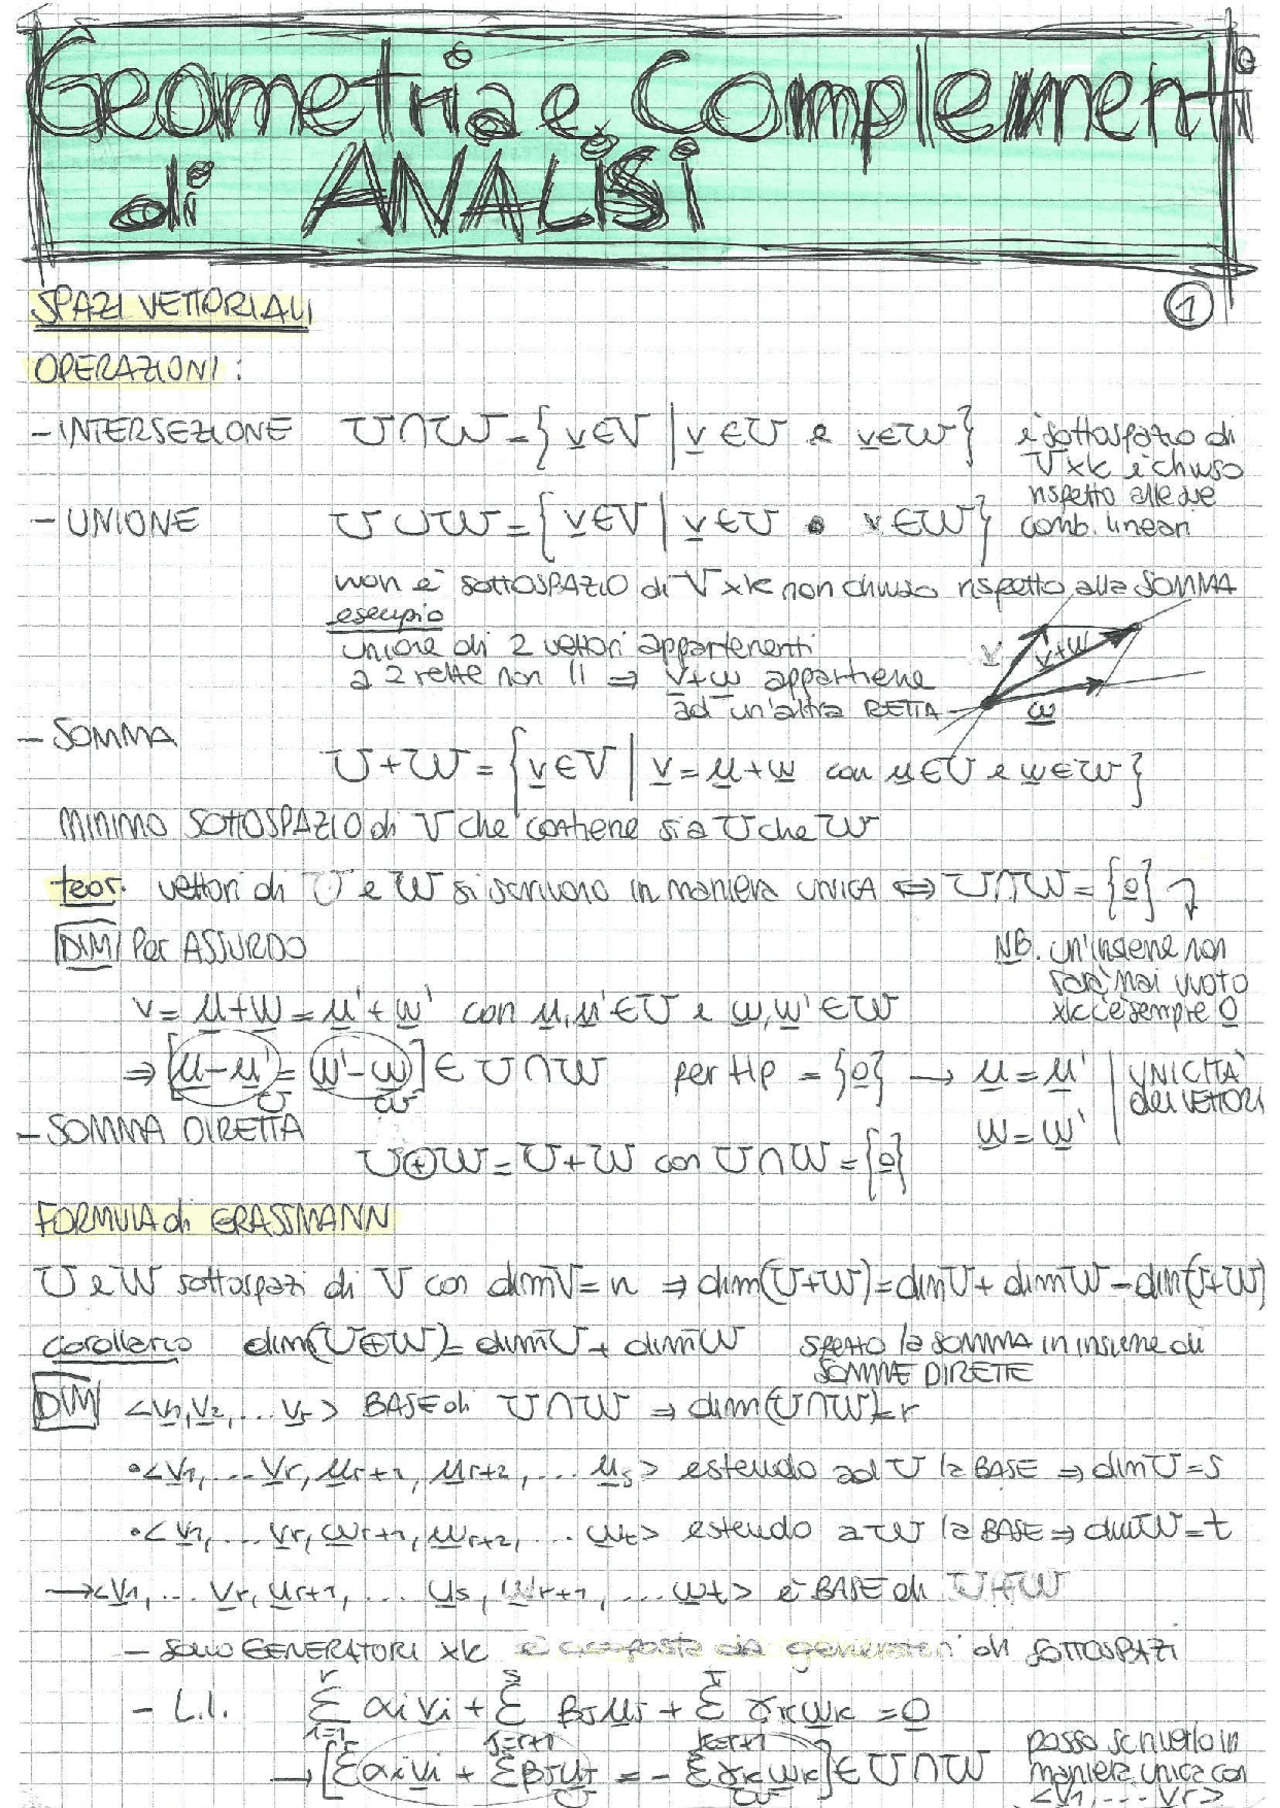 Geometria e Complementi
di ANALISI
1
SPAZI VETTORIALI
OPERAZIONI:
- INTERSEZIONE U∩W={v∈V | v∈U e v∈W} è sottospazio di
V xk è chiuso
rispetto alle due
comb. lineari
- UNIONE U∪W={v∈V | v∈U o v∈W}
non è SOTTOSPAZIO di V xk non chiuso rispetto alla SOMMA
esempio
unione di 2 vettori appartenenti
a 2 rette non || ⇒ v+w appartiene
ad un'altra RETTA
v v+w w
- SOMMA
U+W={v∈V | v=u+w con u∈U e w∈W}
MINIMO SOTTOSPAZIO di V che contiene sia U che W
teor. vettori di U e W si scrivono in maniera UNICA ⇔ U∩W={0}
DIM Per ASSURDO
NB. un'insieme non
sarà mai vuoto
xk c'è sempre 0
v=u+w=u'+w' con u,u'∈U e w,w'∈W
⇒[u-u'=w'-w]∈U∩W per Hp = {0} → u=u' | UNICITÀ
U W w=w' dei VETTORI
- SOMMA DIRETTA
U⊕W=U+W con U∩W={0}
FORMULA di GRASSMANN
U e W sottospazi di V con dimV=n ⇒ dim(U+W)=dimU+dimW-dim(U+W)
corollario dim(U⊕W)=dimU+dimW spetto la SOMMA in insieme di
SOMME DIRETTE
DIM <v1,v2,...vr> BASE di U∩W ⇒ dim(U∩W)=r
•<v1,...vr,ur+1,ur+2,...us> estendo ad U la BASE ⇒ dimU=s
•<v1,...vr,wr+1,wr+2,...wt> estendo a W la BASE ⇒ dimW=t
→<v1,...vr,ur+1,...us,wr+1,...wt> è BASE di U+W
- sono GENERATORI xk è composta da generatori di SOTTOSPAZI
- L.I. r∑i=1 αivi + s∑j=r+1 βjuj + t∑k=r+1 γkwk = 0
→[∑αivi + ∑βjuj = -∑γkwk]∈U∩W
U W
posso scriverlo in
maniera unica con
<v1,...vr>